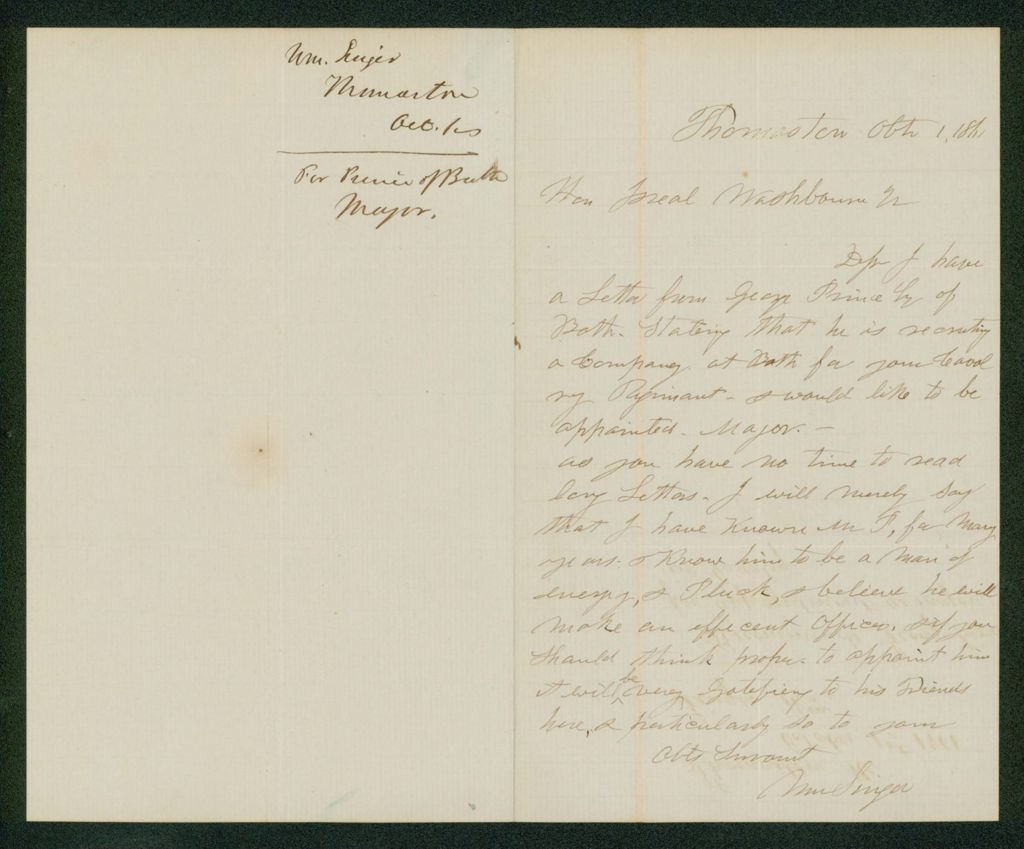 Wm. Singer
Thomaston
Oct. 1
For Prince of Bath
Major.
Thomaston Obtr 1, 1861
Hon Isreal Washbourn Jr
D Sir I have
a Letter from Geoge Prince Esq of
Bath. Stating that he is recruting
a Company at Bath for your Caval
ry Rigimant - & would like to be
appointed. Major. -
as you have no time to read
long Letters. I will merely say
that I have Known Mr P, for Many
years. & Know him to be a Man of
energy, & Pluck, & believe he will
make an efficent Officer, & if you
Should think proper. to appoint him
it will be very Gratifying to his Friends
here, & particularly so to your
Obt Servant
Wm Singer